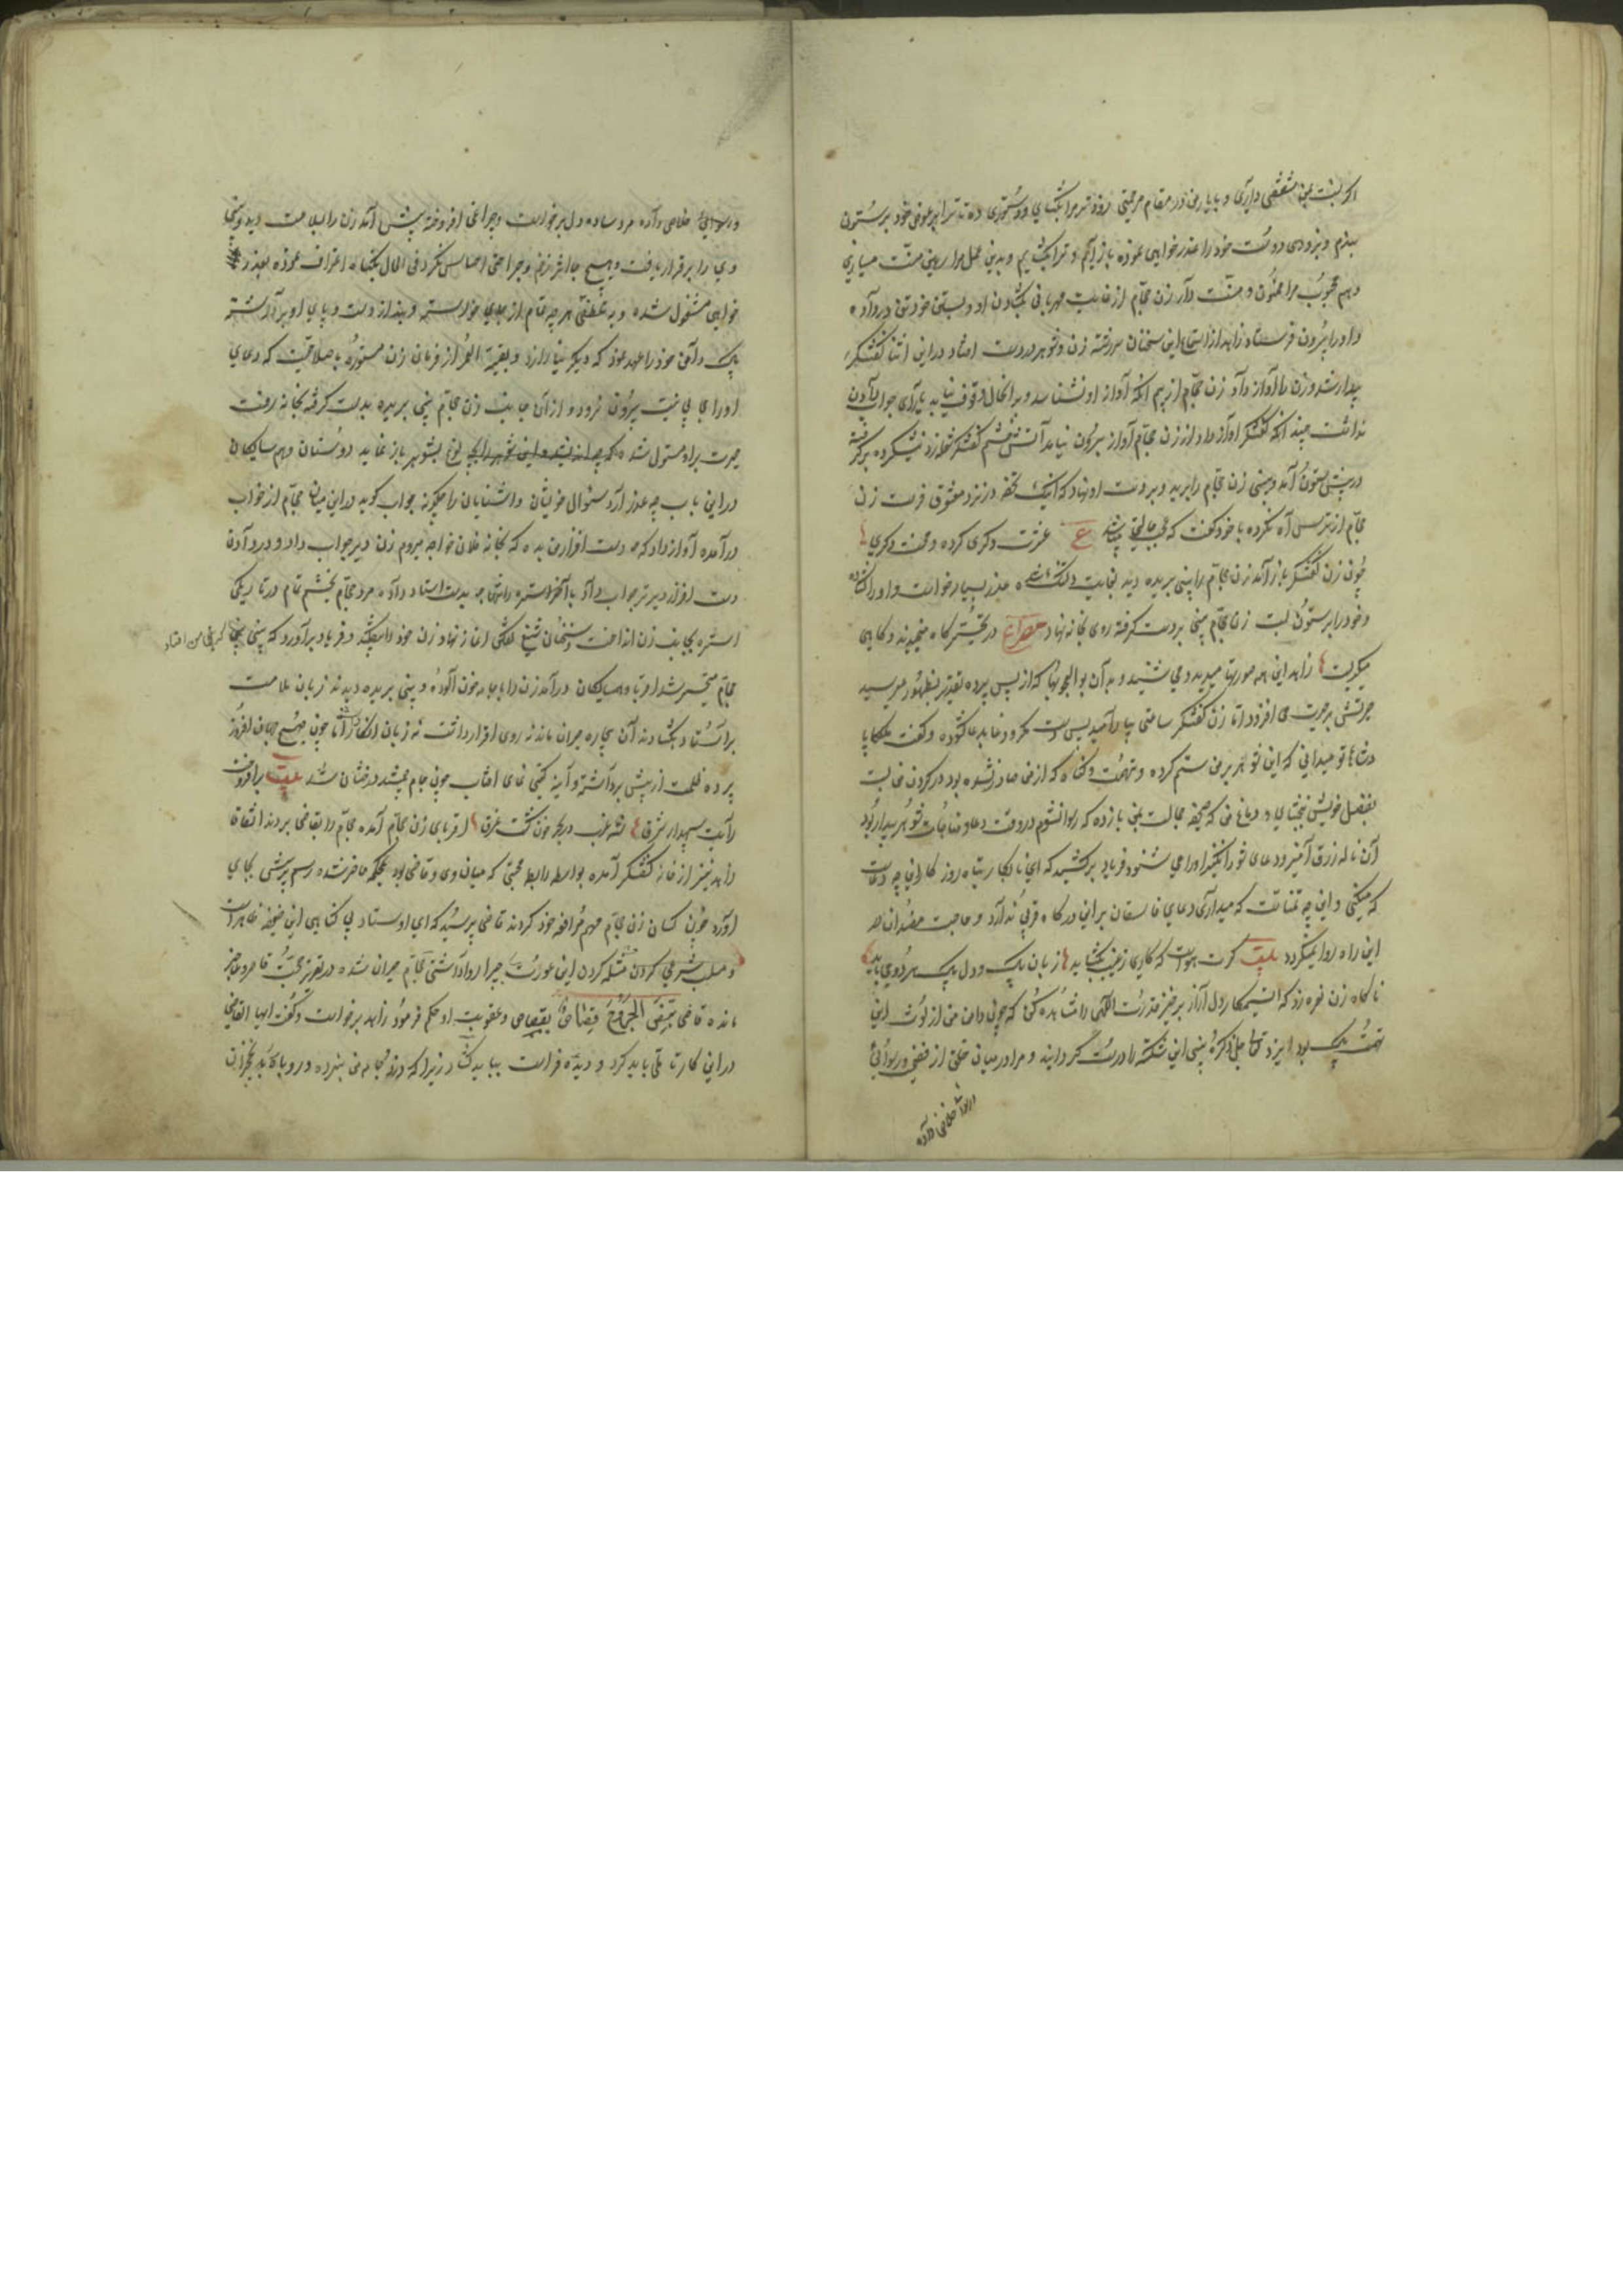 اگر نسبت بمن مشفقی داری و با یار من در مقام مرحمتی زودتر مرا بگشای و دستوری ده تا ترا بر عوض خود بر ستون
ببندم و بزودی دوست خود را عذرخواهی نموده باز آیم و ترا بگشایم و بدین عمل مرا رهین منت میسازی
و هم محبوب مرا ممنون و منت دار زن حجام از غایت مهربانی بگشادن او و بستن خود تن در داد
و او را بیرون فرستاد زاهد از استماع این سخنان سررشته زن و شوهر در دست افتاد در این اثنا کفشگر
بیدار شد و زن را آواز داد زن حجام از بیم آنکه آواز او نشناسد و بر آنحال وقوف نیابد یارای جواب دادن
نداشت چندانکه کفشگر آواز داد از زن حجام آواز بیرون نیامد آتش خشم کفشگر شعله زد نشکرده برگرفته
در پیش ستون آمد و بینی زن حجام را ببرید و بر دست او نهاد که اینک تحفه در نزد معشوق فرست زن
حجام از ترس آه نکرده با خود گفت که عجب حالتی ع عشرت دگری کرده و محنت دگری
چون زن کفشگر باز آمد زن حجام را بینی بریده دید بغایت دلتنگ شده عذر بسیار خواست و او را گشاده
و خود را بر ستون بست زن حجام بینی بر دست گرفته روی بخانه نهاد مصراع در تحیر گاه میخندید و گاهی
میگریست زاهد این همه صورتها میدید و می شنید و بدان بوالعجبیها که از پس پرده تقدیر بظهور میرسید
حیرتش بر حیرت می افزود اما زن کفشگر ساعتی بیارامید پس دست مکر و دغا بدعا گشوده و گفت ملکا پا
دشاها تو میدانی که این شوهر بر من ستم کرده و تهمت و گناه که از من صادر نشده بود در گردن من بست
بفضل خویش ببخشای و دماغ من که صحیفه جمالست بمن باز ده که رسوا نشوم در وقت دعا و مناجات شوهر بیدار بود
آن ناله زرق آمیز و دعای شورانگیز او را می شنود فریاد برکشید که ای نابکار تباه روزگار این چه دعاست
که میکنی و این چه تمناست که میداری دعای فاسقان بر این درگاه قربی ندارد و حاجت مفسدان در
این راه روا نمیگردد بیت گرت هواست که کاری ز غیب بگشاید زبان پاک و دل پاک هر دو می باید
ناگاه زن نعره زد که ای ستمکار دل آزار برخیز قدرت الهی را مشاهده کن که چون دامن من از لوث این
تهمت پاک بود ایزد تعالی جل ذکره بینی این شکسته را درست گردانید و مرا در میان خلق از فضیحت و رسوائی
و رسوائی خلاصی داده
و رسوائی خلاصی داد مرد ساده دل برخواست و چراغی افروخته پیش آمد زن را بسلامت دید و بینی
وی را برقرار یافت و هیچ جا اثر زخم و جراحتی احساس نکرد فی الحال بگناه اعتراف نموده بعذر
خواهی مشغول شده و به لطفی هر چه تمام از وی بحلی خواسته و بند از دست و پای او برداشته
پاک دامنی خود را عهد نمود که دیگر نیازارد و بقیة العمر از فرمان زن مستوره باصلاحیت که دعای
او را حجابی نیست بیرون نرود و از آن جانب زن حجام بینی بریده بدست گرفته بخانه رفت
حیرت بر او مستولی شد که چه اندیشد و این صورت را بچه نوع بشوهر باز نماید دوستان و همسایگان
در این باب چه عذر آرد سئوال خویشان و آشنایان را چگونه جواب گوید در این میانه حجام از خواب
درآمده آواز داد که دست افزار من بده که بخانه فلان خواجه میروم زن دیر جواب داد و در دادن
دست افزار دیرتر جواب داد تا آخر استره را تنها بدست استاد داد مرد حجام بخشم تمام در تاریکی
استره بجانب زن انداخت و سخنان شنیع گفتن آغاز نهاد زن خود را بیفکند و فریاد برآورد که بینی بینی
که بینی من افتاد
حجام متحیر شد اقربا و همسایگان درآمدند زن را با جامه خون آلوده و بینی بریده دیدند زبان ملامت
بر استاد بگشادند آن بیچاره حیران مانده نه روی اقرار داشت نه زبان انکار اما چون صبح جهان افروز
پرده ظلمت از پیش برداشته و آینه گیتی نمای آفتاب چون جام جمشید درخشان شد بیت برافراخت
رایت سپهدار شرق شه غرب در بحر خون گشت غرق اقربای زن حجام آمده حجام را بقاضی بردند اتفاقا
زاهد نیز از خانه کفشگر آمده بواسطه رابطه محبتی که میان وی و قاضی بود بمحکمه حاضر شده رسم پرسش بجای
آورد چون کسان زن حجام مهم مرافعه خود کردند قاضی پرسید که ای اوستاد بی گناهی این ضعیفه ظاهر است
و سبب شرعی کردن مثله کردن این عورت چرا روا داشتی حجام حیران شده در تقریر حجت قاصر و عاجز
مانده قاضی بنص الجروح قصاص بقصاص و عقوبت او حکم فرمود زاهد برخواست و گفت ایها القاضی
در این کار تاملی باید کرد و دیده فراست بباید گشاد زیرا که دزد جامه من نبرده و روباه را نخجیران